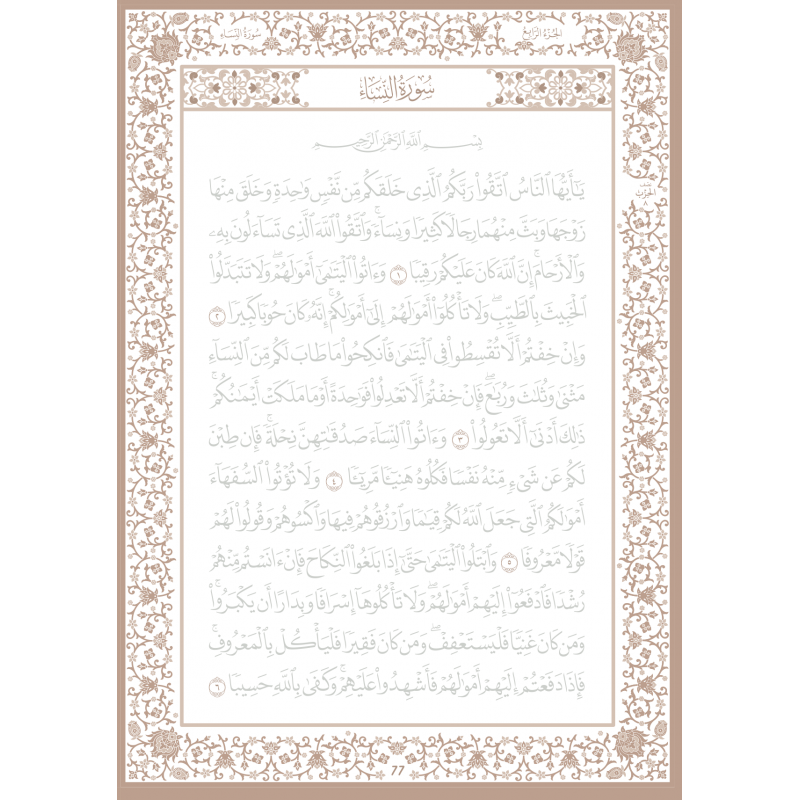 سُورَةُ النِّسَاءِ
الجُزْءُ الرَّابِعُ
سُورَةُ النِّسَاءِ
بِسْمِ ٱللَّهِ ٱلرَّحْمَٰنِ ٱلرَّحِيمِ
يَٰٓأَيُّهَا ٱلنَّاسُ ٱتَّقُوا۟ رَبَّكُمُ ٱلَّذِى خَلَقَكُم مِّن نَّفْسٍ وَٰحِدَةٍ وَخَلَقَ مِنْهَا
نصف الحزب ٨
زَوْجَهَا وَبَثَّ مِنْهُمَا رِجَالًا كَثِيرًا وَنِسَآءً ۚ وَٱتَّقُوا۟ ٱللَّهَ ٱلَّذِى تَسَآءَلُونَ بِهِۦ
وَٱلْأَرْحَامَ ۚ إِنَّ ٱللَّهَ كَانَ عَلَيْكُمْ رَقِيبًا ١ وَءَاتُوا۟ ٱلْيَتَٰمَىٰٓ أَمْوَٰلَهُمْ ۖ وَلَا تَتَبَدَّلُوا۟
ٱلْخَبِيثَ بِٱلطَّيِّبِ ۖ وَلَا تَأْكُلُوٓا۟ أَمْوَٰلَهُمْ إِلَىٰٓ أَمْوَٰلِكُمْ ۚ إِنَّهُۥ كَانَ حُوبًا كَبِيرًا ٢
وَإِنْ خِفْتُمْ أَلَّا تُقْسِطُوا۟ فِى ٱلْيَتَٰمَىٰ فَٱنكِحُوا۟ مَا طَابَ لَكُم مِّنَ ٱلنِّسَآءِ
مَثْنَىٰ وَثُلَٰثَ وَرُبَٰعَ ۖ فَإِنْ خِفْتُمْ أَلَّا تَعْدِلُوا۟ فَوَٰحِدَةً أَوْ مَا مَلَكَتْ أَيْمَٰنُكُمْ ۚ
ذَٰلِكَ أَدْنَىٰٓ أَلَّا تَعُولُوا۟ ٣ وَءَاتُوا۟ ٱلنِّسَآءَ صَدُقَٰتِهِنَّ نِحْلَةً ۚ فَإِن طِبْنَ
لَكُمْ عَن شَىْءٍ مِّنْهُ نَفْسًا فَكُلُوهُ هَنِيٓـًٔا مَّرِيٓـًٔا ٤ وَلَا تُؤْتُوا۟ ٱلسُّفَهَآءَ
أَمْوَٰلَكُمُ ٱلَّتِى جَعَلَ ٱللَّهُ لَكُمْ قِيَٰمًا وَٱرْزُقُوهُمْ فِيهَا وَٱكْسُوهُمْ وَقُولُوا۟ لَهُمْ
قَوْلًا مَّعْرُوفًا ٥ وَٱبْتَلُوا۟ ٱلْيَتَٰمَىٰ حَتَّىٰٓ إِذَا بَلَغُوا۟ ٱلنِّكَاحَ فَإِنْ ءَانَسْتُم مِّنْهُمْ
رُشْدًا فَٱدْفَعُوٓا۟ إِلَيْهِمْ أَمْوَٰلَهُمْ ۖ وَلَا تَأْكُلُوهَآ إِسْرَافًا وَبِدَارًا أَن يَكْبَرُوا۟ ۚ
وَمَن كَانَ غَنِيًّا فَلْيَسْتَعْفِفْ ۖ وَمَن كَانَ فَقِيرًا فَلْيَأْكُلْ بِٱلْمَعْرُوفِ ۚ
فَإِذَا دَفَعْتُمْ إِلَيْهِمْ أَمْوَٰلَهُمْ فَأَشْهِدُوا۟ عَلَيْهِمْ ۚ وَكَفَىٰ بِٱللَّهِ حَسِيبًا ٦
77